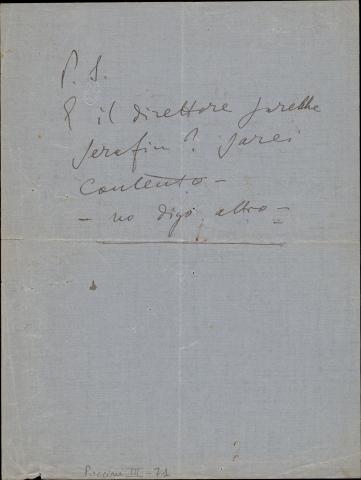 P. S.
E il direttore sarebbe
Serafin? Sarei
contento –
– no digo altro –
Puccini III – 71